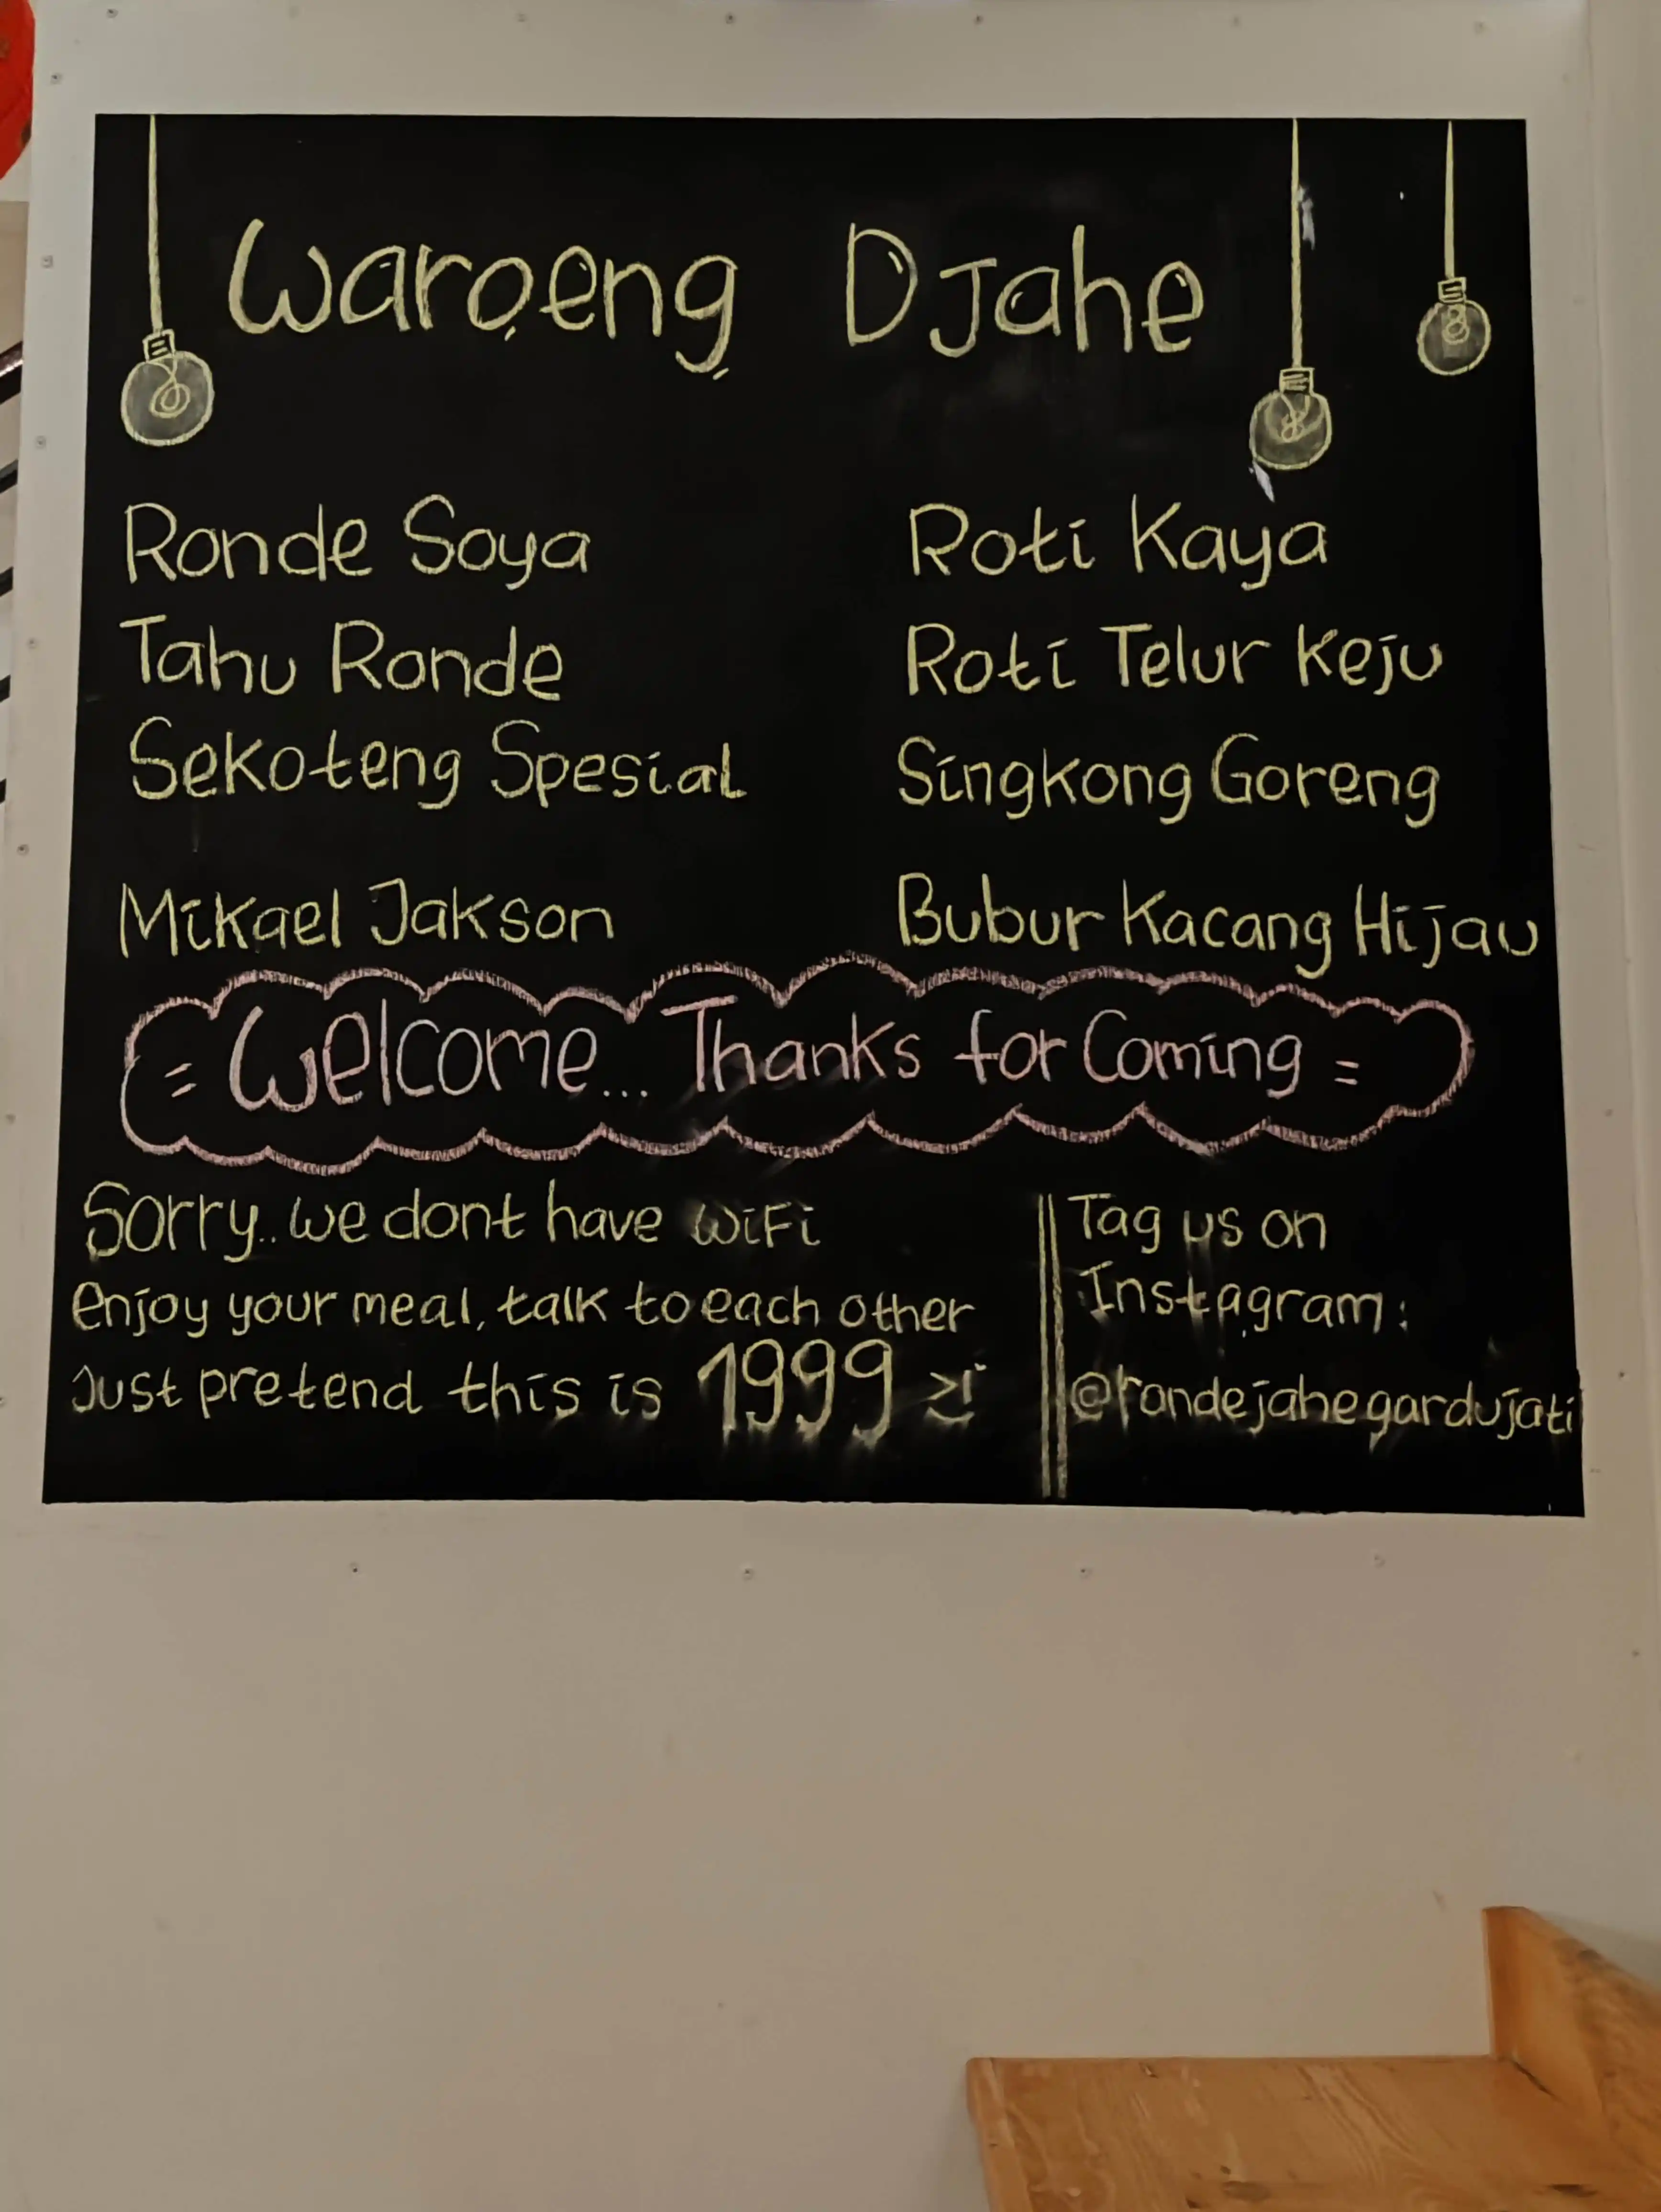 Waroeng Djahe
Ronde Soya
Tahu Ronde
Sekoteng Spesial
Mikael Jakson
Roti Kaya
Roti Telur Keju
Singkong Goreng
Bubur Kacang Hijau
= Welcome... Thanks for Coming =
Sorry.. we dont have WiFi
enjoy your meal, talk to each other
Just pretend this is 1999
Tag us on
Instagram:
@rondejahegardujati